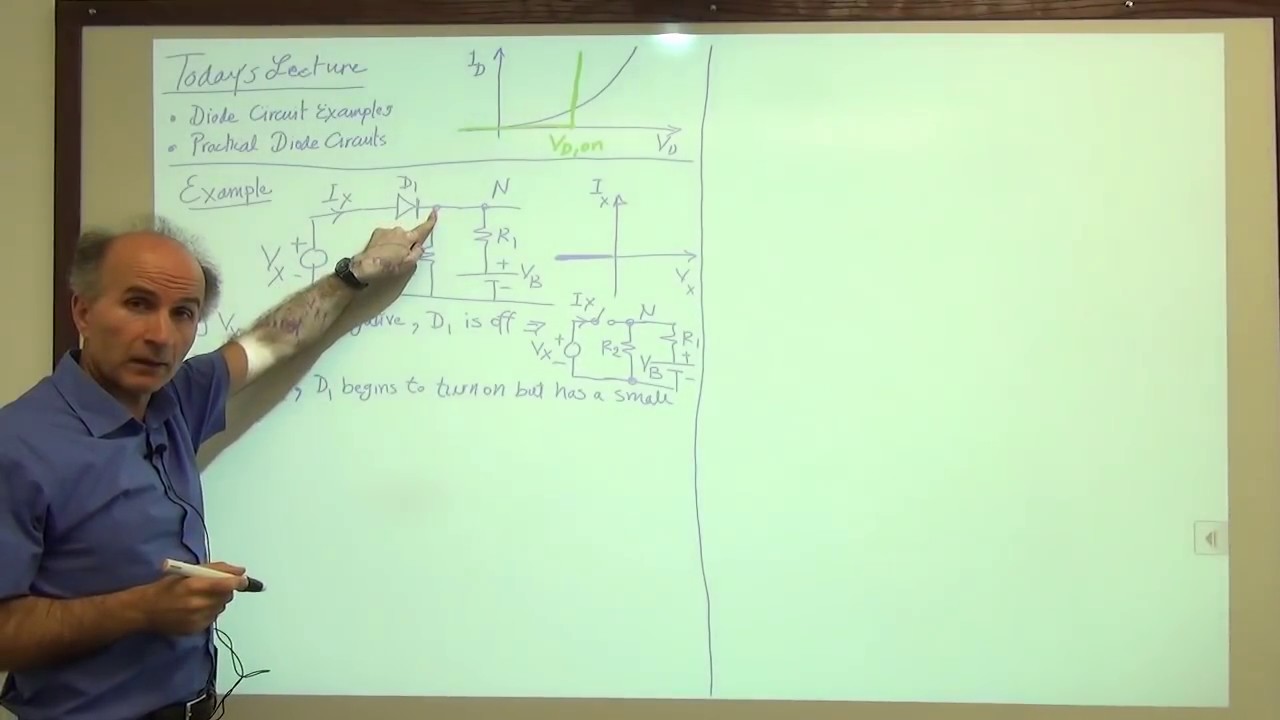 Today's Lecture
• Diode Circuit Examples
• Practical Diode Circuits
I_D
V_D,on
V_D
Example
I_X
D_1
N
V_X
+
-
R_1
+
-
V_B
I_X
V_X
V_X
negative, D_1 is off ⇒
I_X
N
V_X
+
-
R_2
R_1
V_B
+
-
, D_1 begins to turn on but has a small